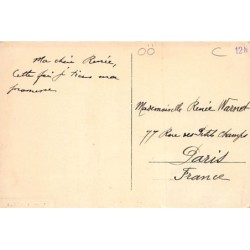 OÖ
C 12h
Ma chère Renée,
Cette fois j'tiens ma
promesse.
Mademoiselle Renée Warnet
77 Rue des Petits Champs
Paris
France